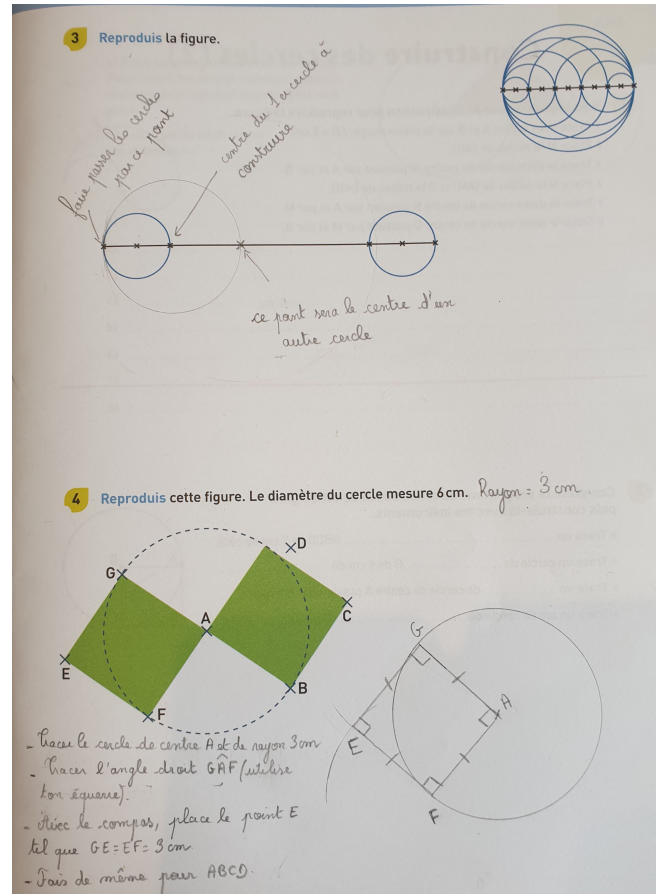 3 Reproduis la figure.
faire passer les cercles
par ce point
centre du 1er cercle à
construire
ce point sera le centre d'un
autre cercle
4 Reproduis cette figure. Le diamètre du cercle mesure 6 cm. Rayon = 3 cm.
D
G
A
C
E
B
F
G
A
E
F
- Tracer le cercle de centre A et de rayon 3 cm
- Tracer l'angle droit GAF (utilise
ton équerre).
- Avec le compas, place le point E
tel que GE = EF = 3 cm
- Fais de même pour ABCD.